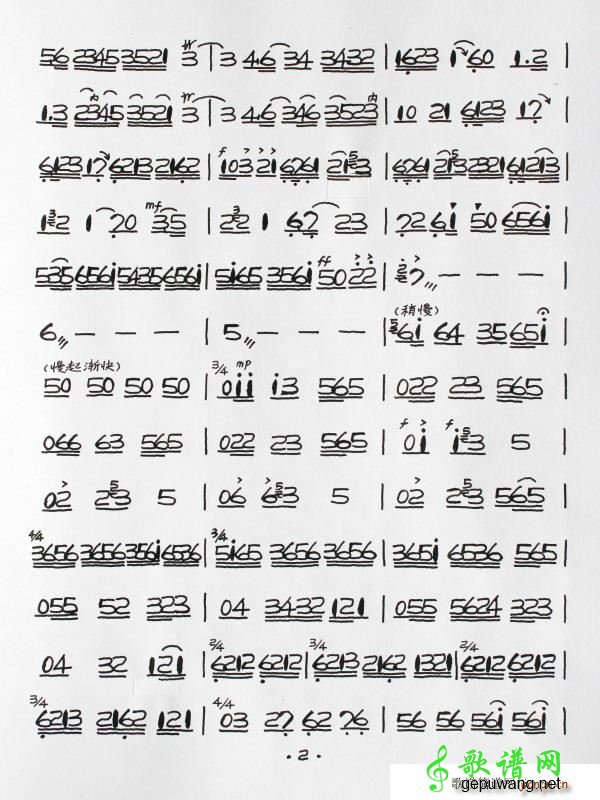 56 2345 3521 3 | 3 4.6 34 3432 | 1623 1 60 1.2 |
1.3 2345 3521 3 | 3 4.6 346 3523 | 10 21 6123 17 |
6123 17 6213 2162 | f 103 21 6761 2153 | 6761 215 2321 61213 |
132 1 70 mf 35 | 232 1 67 23 | 72 61 50 6561
5356561 54356561 | 5165 3561 ff 50 22 | 7 — — —
6 — — — | 5 — — — | (稍慢) 61 64 35 651 |
(慢起渐快) 50 50 50 50 | 3/4 mp 011 13 565 | 022 23 565 |
066 63 565 | 022 23 565 | f 01 f 153 5 |
02 253 5 | 06 653 5 | 02 253 565 |
4/4 3656 3656 3561 6536 | 3/4 5165 3656 3656 | 3651 6536 565 |
055 52 323 | 04 3432 121 | 055 5624 323 |
04 32 121 | 2/4 6212 6212 | 3/4 6213 2162 1321 | 2/4 6212 6212 |
3/4 6213 2162 121 | 4/4 03 27 62 76 | 56 56 561 561 |
· 2 ·
歌谱网
gepuwang.net